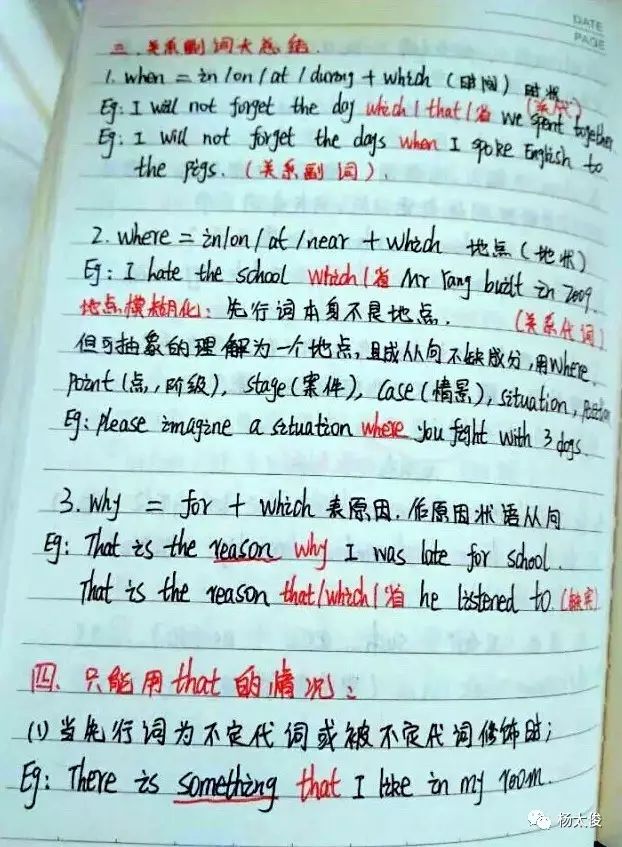 DATE
PAGE
三、关系副词大总结.
1. when = in / on / at / during + which (时间) 时状
Eg: I will not forget the day which / that / 省 we spent together (关代)
Eg: I will not forget the days when I spoke English to
the pigs. (关系副词).
2. where = in/on/at/near + which 地点(地状)
Eg: I hate the school which/省 Mr Yang built in 2009.
地点模糊化: 先行词本身不是地点. (关系代词)
但可抽象的理解为一个地点,且成从句不缺成分,用where.
point(点,阶级), stage(案件), case(情景), situation, position
Eg: please imagine a situation where you fight with 3 dogs.
3. why = for + which 表原因.作原因状语从句
Eg: That is the reason why I was late for school.
That is the reason that/which/省 he listened to. (缺宾)
四、只能用that的情况:
(1) 当先行词为不定代词或被不定代词修饰时;
Eg: There is something that I like in my room.
杨太俊